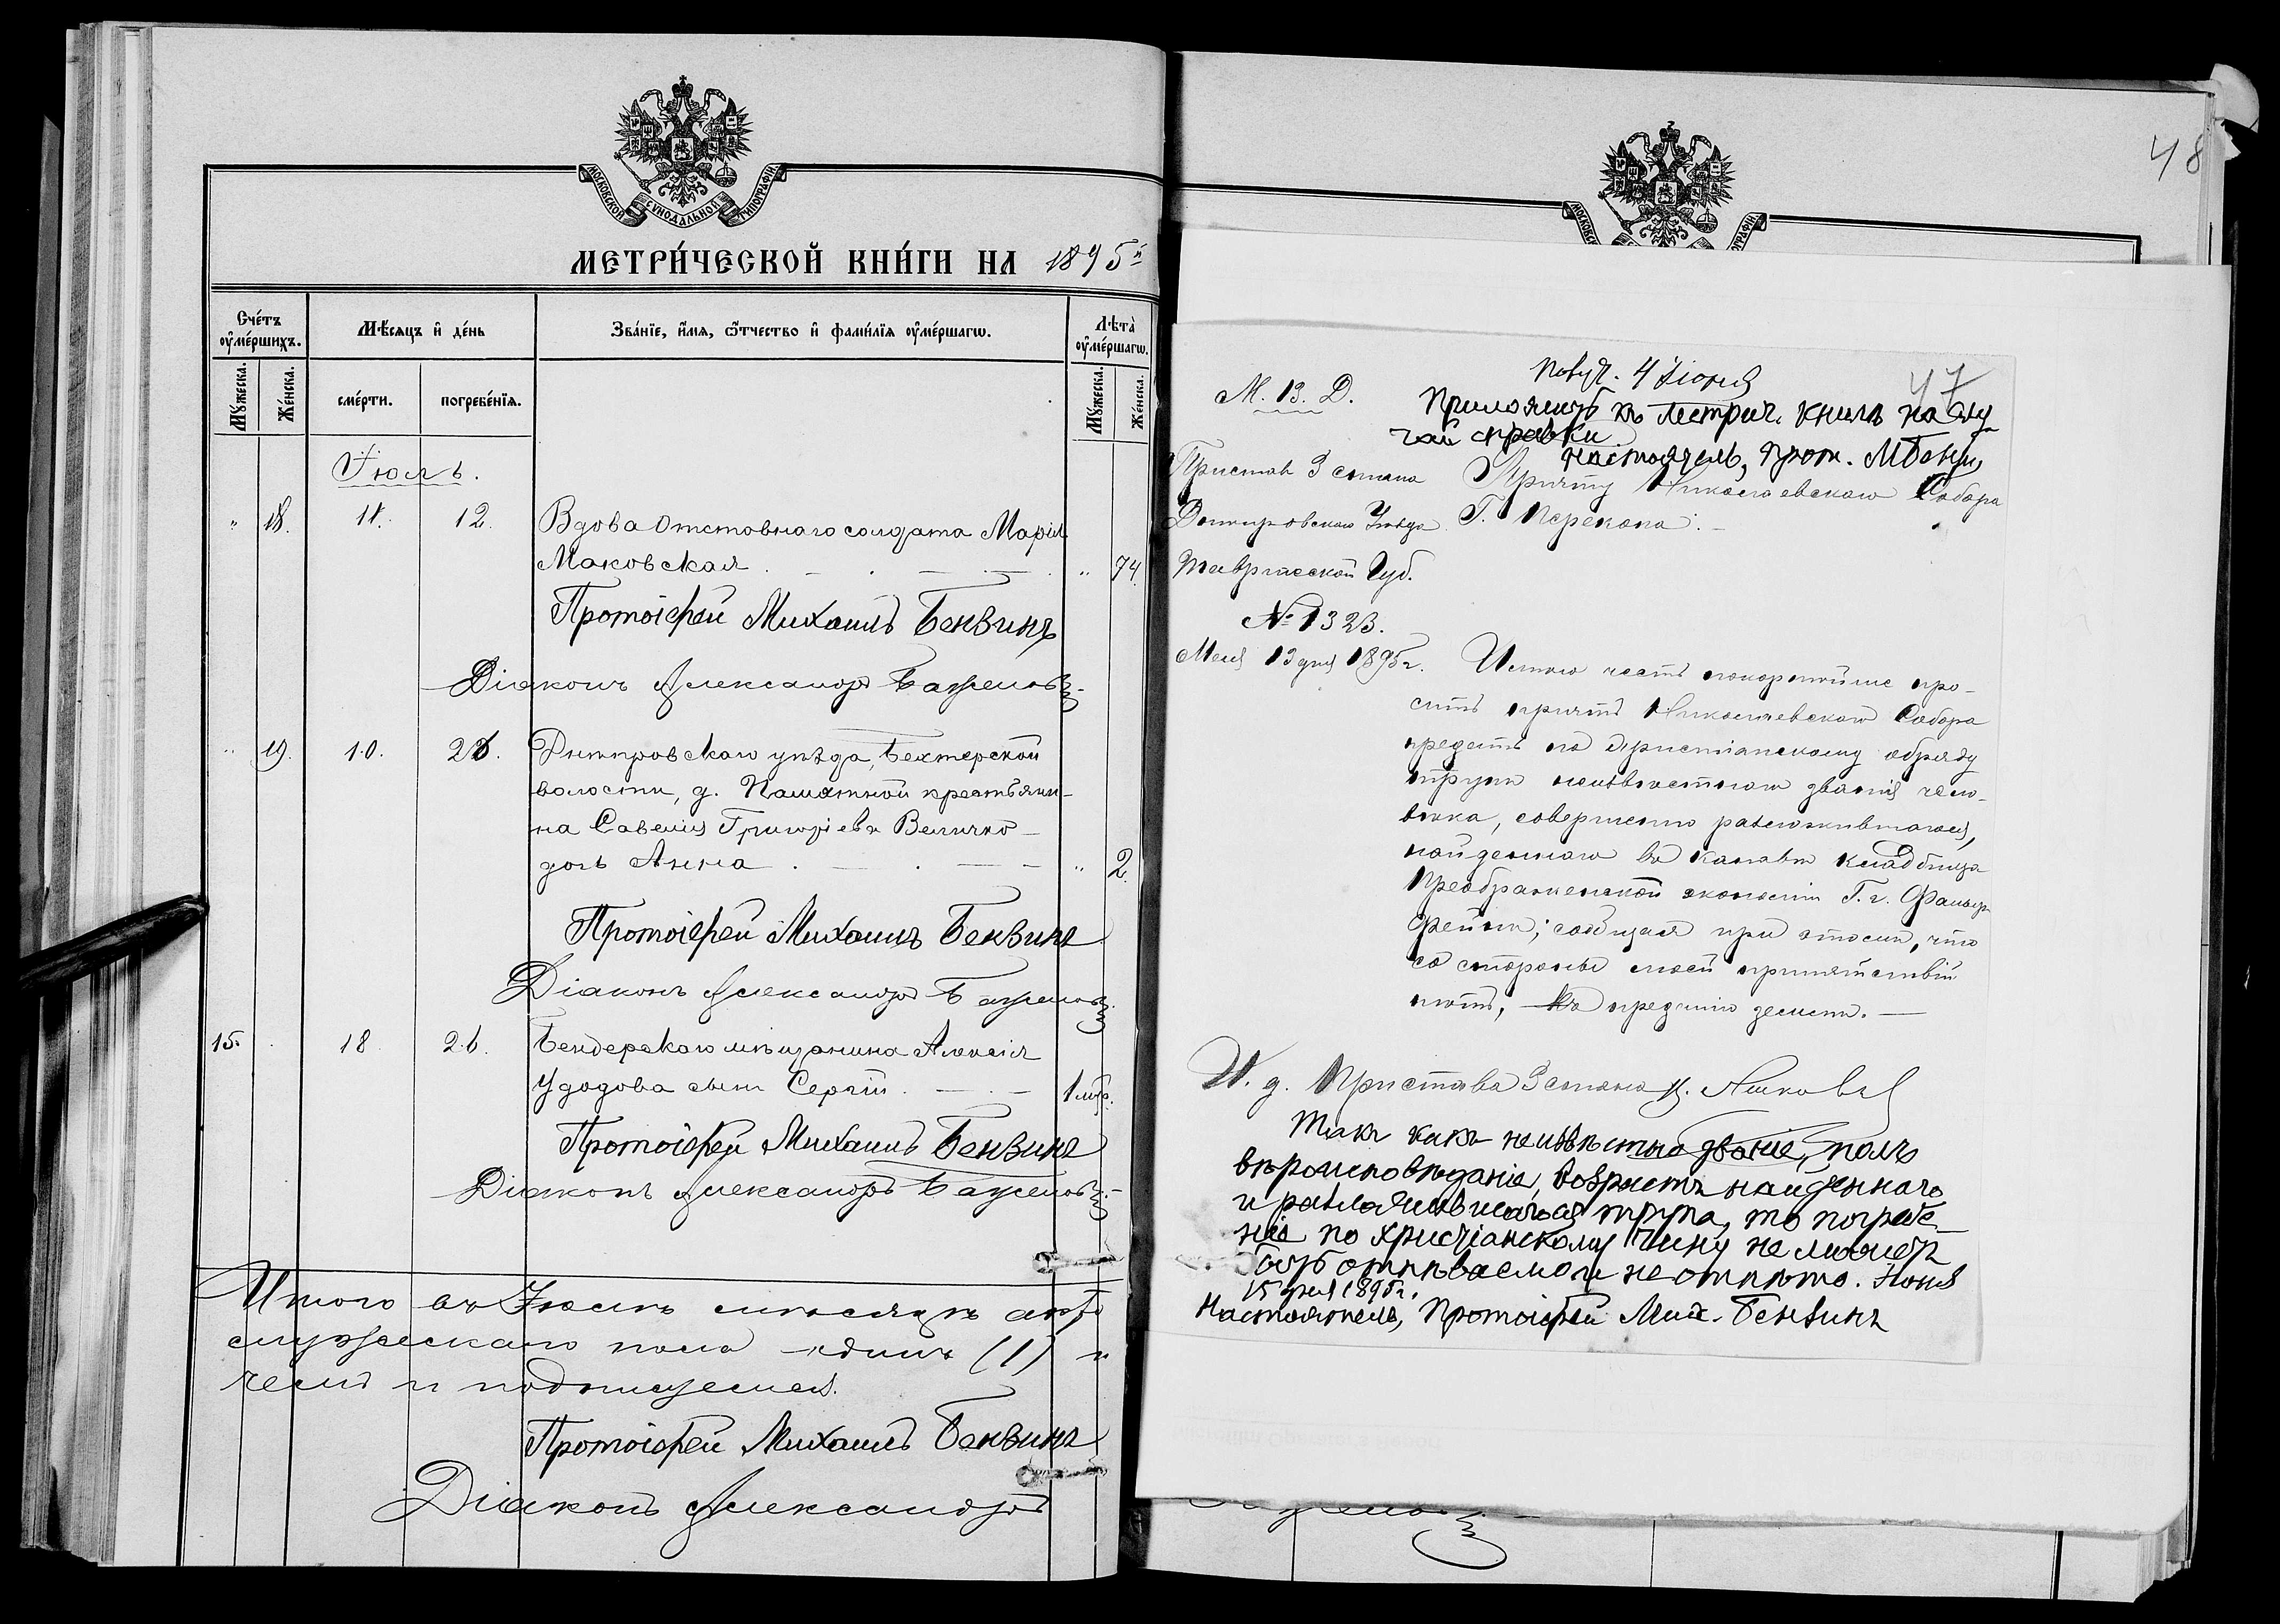 МОСКОВСКОЙ СѴНОДАЛЬНОЙ ТИПОГРАФІИ
МЕТРИ́ЧЕСКОЙ КНИ́ГИ НА 1895й
Сче́тъ оу҆ме́ршихъ.
Мѣ́сяцъ и҆ де́нь
Зва́нїе, и҆́мя, ѻ҆́тчество и҆ фами́лїя оу҆ме́ршагѡ.
Лѣта̀ оу҆ме́ршагѡ.
Мꙋ́жеска.
Же́нска.
сме́рти.
погребе́нїя.
Мꙋ́жеска.
Же́нска.
Іюль.
" 18. 11. 12. Вдова отставнаго солдата Марія
Маковская " 74.
Протоіерей Михаилъ Бенвинъ
Діаконъ Александръ
" 19. 10. 26. Днѣпровскаго уѣзда, Бехтерской
волости, д. крестьяни-
на Савелія Григоріева Величко
дочь Анна " 2.
Протоіерей Михаилъ Бенвинъ
Діаконъ Александръ
15. 18. 26. Бендерскаго мѣщанина Алексія
Удодова сынъ Сергій 1
Протоіерей Михаилъ Бенвинъ
Діаконъ Александръ
Итого въ Іюлѣ мѣсяцѣ
мужескаго пола одинъ (1) и
чемъ и подписуемся.
Протоіерей Михаилъ Бенвинъ
Діаконъ Александръ
48
47
Получ. 4 Іюня
Приложить къ метрич. книгѣ на слу
чай справки
Настоятель, Прот. М Бенвин
М. В. Д.
Приставъ 3 стана
Днѣпровскаго Уѣзда
Таврической Губ.
№ 1323.
Мая 13 дня 1895 г.
Причту Николаевскаго Собора
Г. Перекопа.
Имѣю честь покорнѣйше про-
сить причтъ Николаевскаго Собора
предать по христіанскому обряду
трупъ неизвѣстнаго званія чело-
вѣка, совершенно разложившагося,
найденнаго въ канавѣ кладбища
Преображенской экономіи Г. г. Фальц-
Фейнъ; сообщая при этомъ, что
со стороны моей препятствій
нѣтъ, къ преданію землѣ.
И. д. Пристава 3 стана
Такъ какъ неизвѣстно званіе, полъ
вѣроисповѣданіе, возрастъ найденнаго
и разложившагося трупа, то погребе-
ніе по христіанскому чину не можетъ
быть отпѣваемо и не отпѣто. Іюня
15 дня 1895 г.
Настоятель, Протоіерей Мих. Бенвинъ